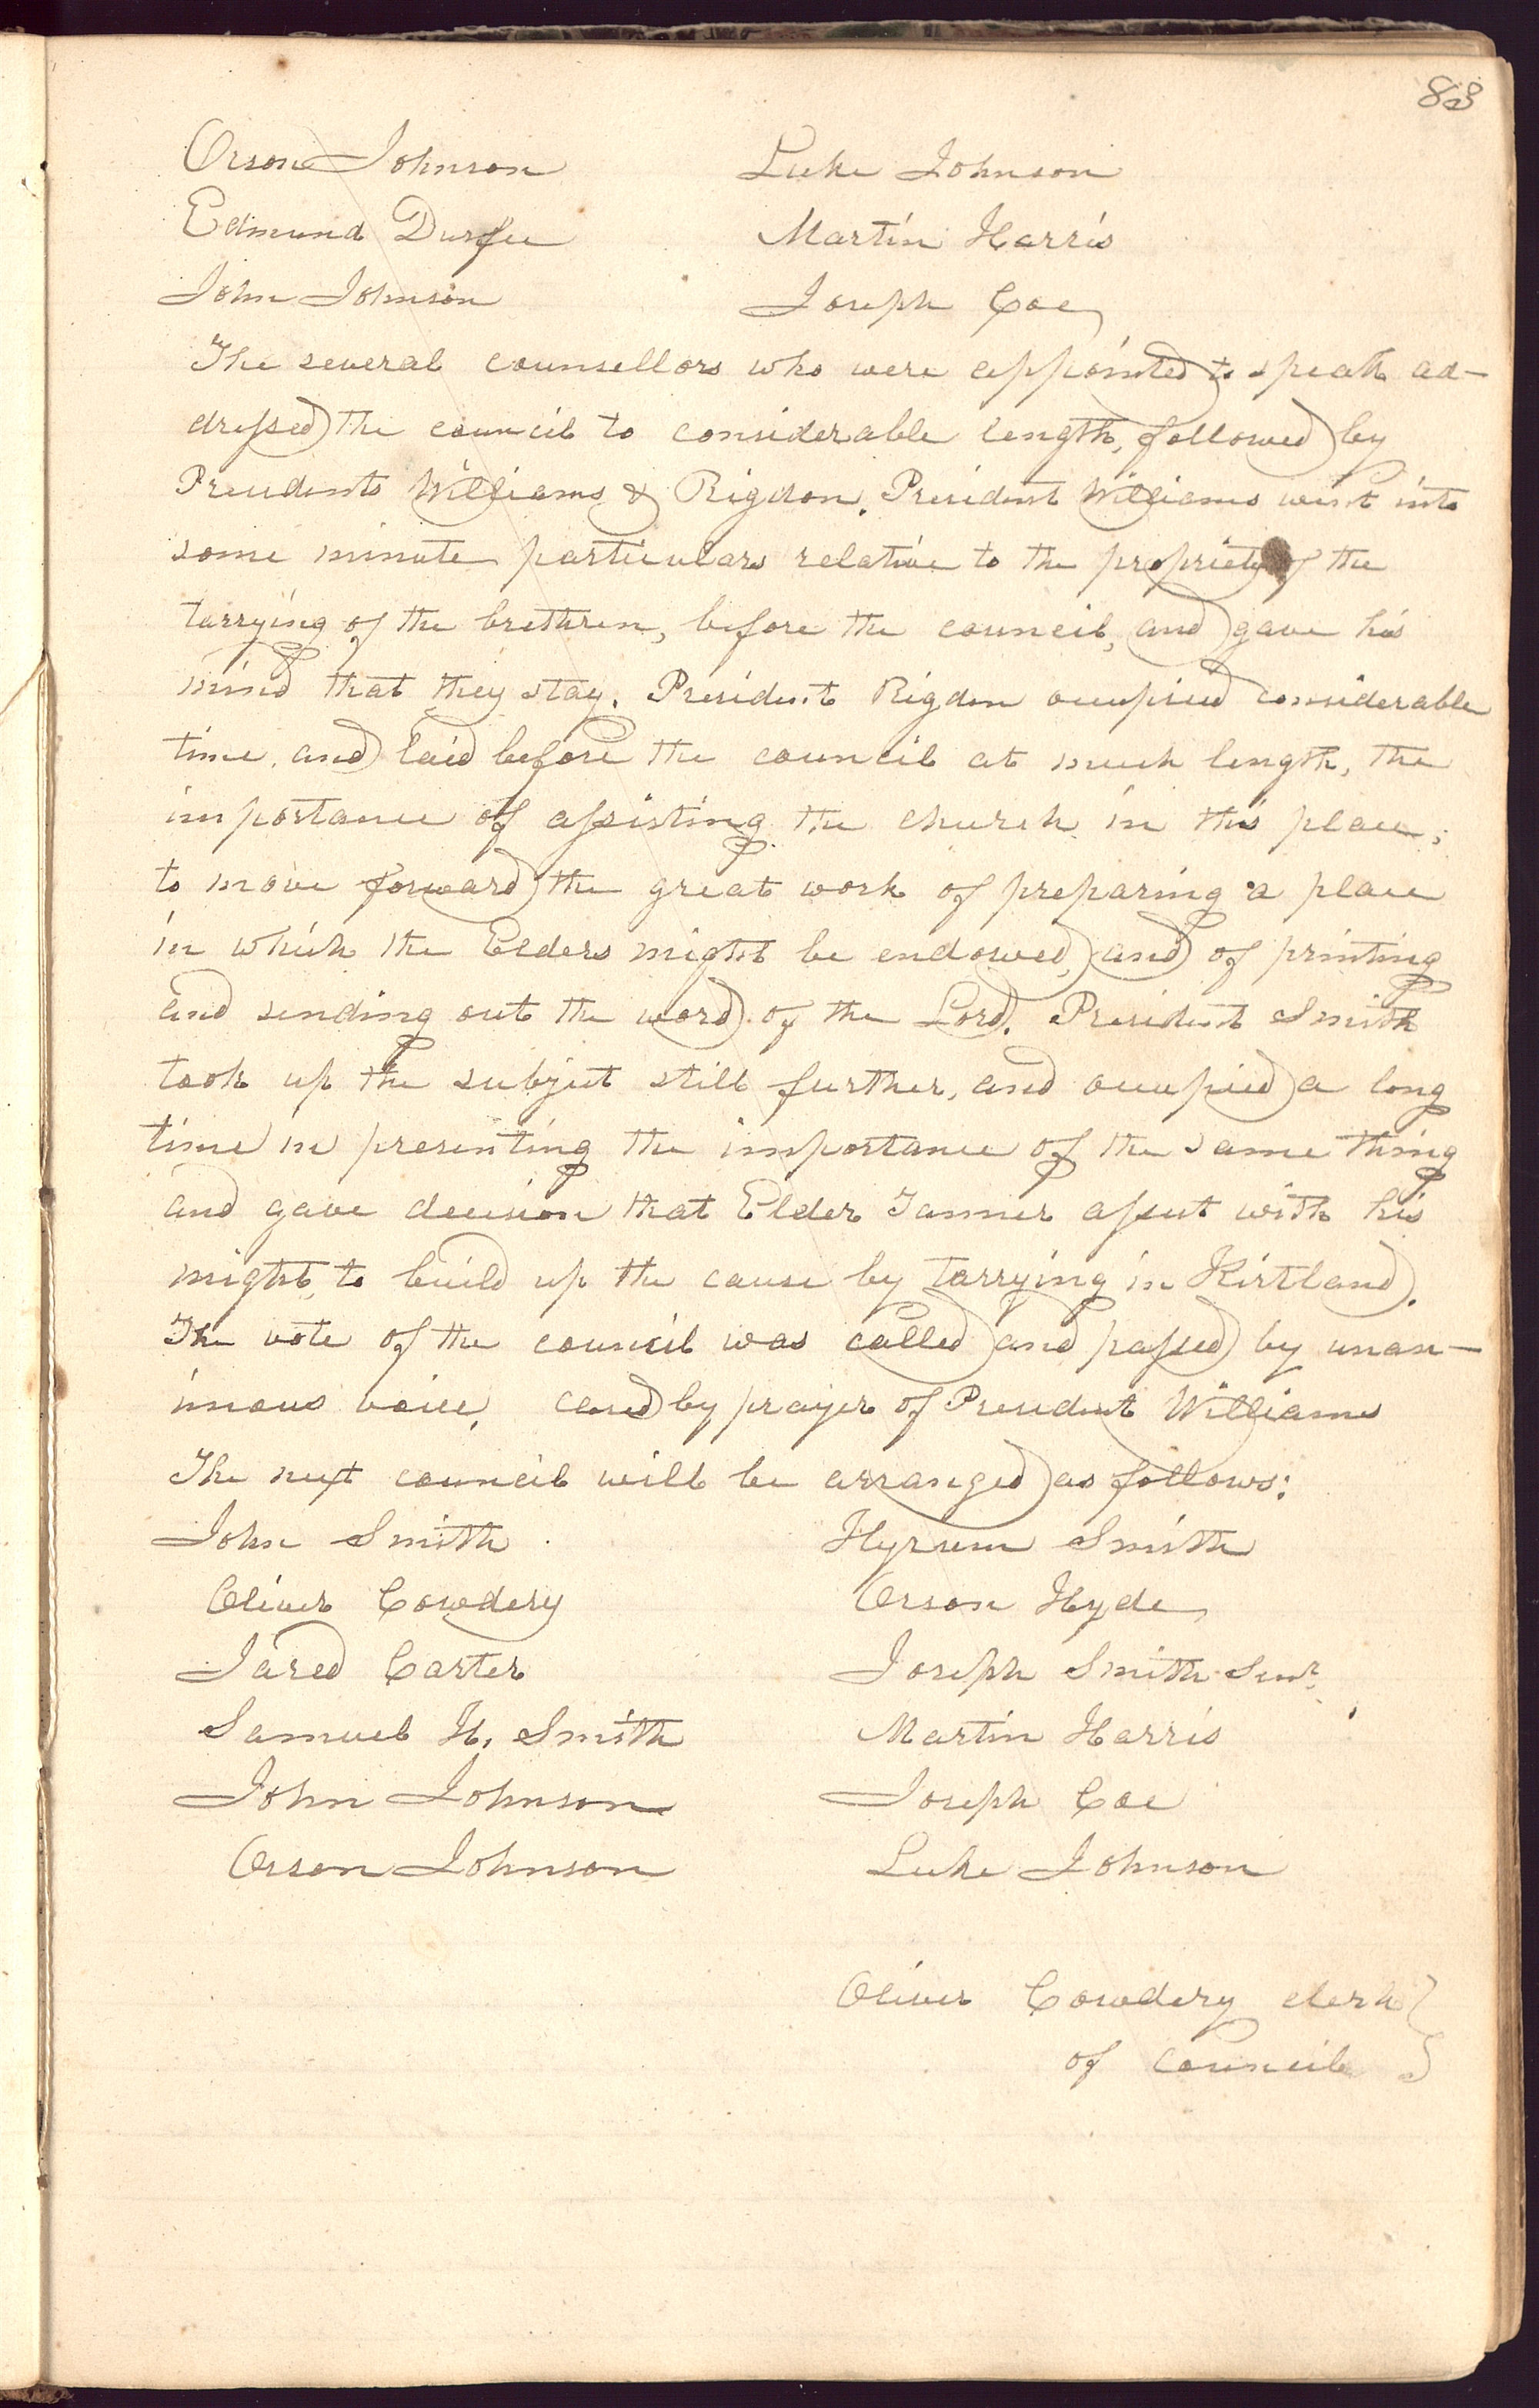 83
Orson Johnson Luke Johnson
Edmund Durfee Martin Harris
John Johnson Joseph Coe
The several counsellors who were appointed to speak ad-
dressed the council to considerable length, followed by
Presidents Williams & Rigdon. President Williams went into
some minute particulars relative to the propriety of the
tarrying of the brethren, before the council, and gave his
mind that they stay. President Rigdon occupied considerable
time, and laid before the council at much length, the
importance of assisting the church in this place,
to move forward the great work of preparing a place
in which the Elders might be endowed, and of printing
and sending out the word of the Lord. President Smith
took up the subject still further, and occupied a long
time in presenting the importance of the same thing
and gave decision that Elder Tanner assist with his
might, to build up the cause by tarrying in Kirtland.
The vote of the council was called and passed by unan-
imous voice, closed by prayer of President Williams
The next council will be arranged as follows:
John Smith Hyrum Smith
Oliver Cowdery Orson Hyde
Jared Carter Joseph Smith Senr.
Samuel H. Smith Martin Harris
John Johnson Joseph Coe
Orson Johnson Luke Johnson
Oliver Cowdery clerk }
of council }